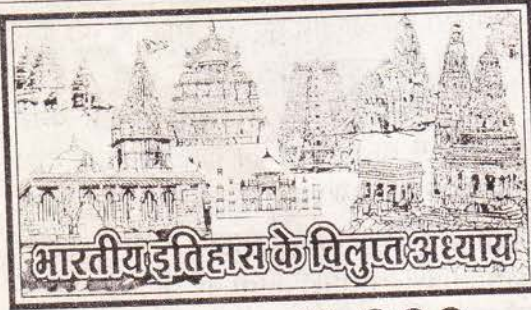 भारतीय इतिहास के विलुप्त अध्याय